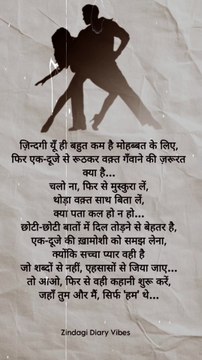 ज़िन्दगी यूँ ही बहुत कम है मोहब्बत के लिए,
फिर एक-दूजे से रूठकर वक़्त गँवाने की ज़रूरत
क्या है...
चलो ना, फिर से मुस्कुरा लें,
थोड़ा वक़्त साथ बिता लें,
क्या पता कल हो न हो...
छोटी-छोटी बातों में दिल तोड़ने से बेहतर है,
एक-दूजे की ख़ामोशी को समझ लेना,
क्योंकि सच्चा प्यार वही है
जो शब्दों से नहीं, एहसासों से जिया जाए...
तो आओ, फिर से वही कहानी शुरू करें,
जहाँ तुम और मैं, सिर्फ 'हम' थे...
Zindagi Diary Vibes